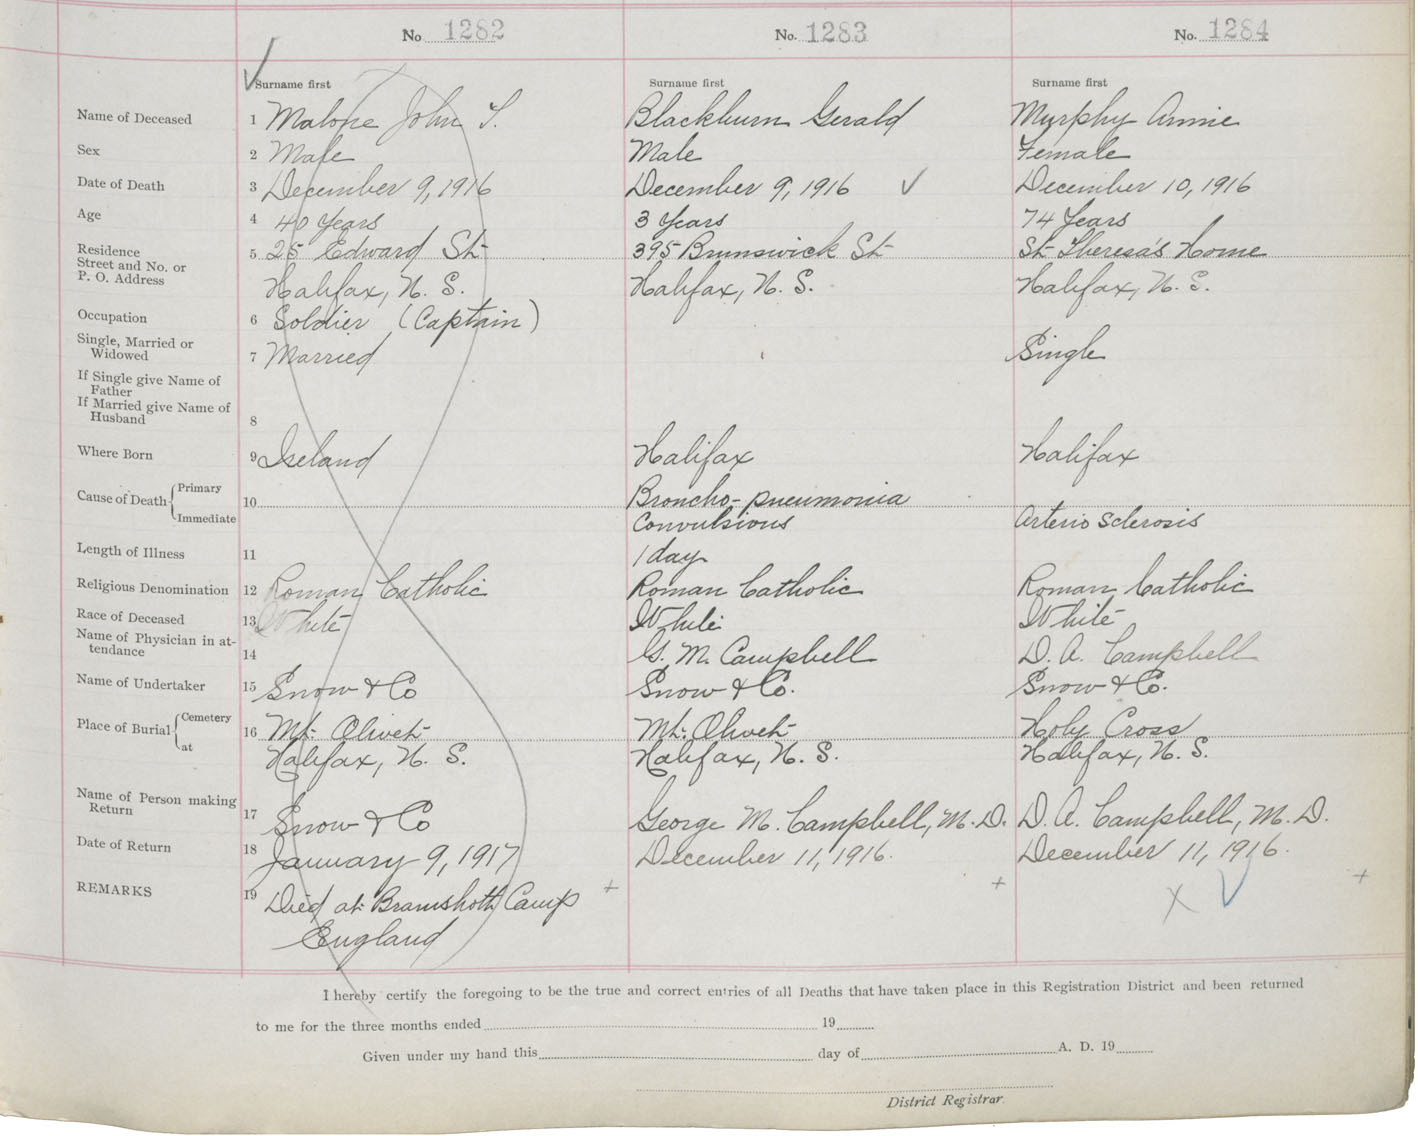 No. 1282 No. 1283 No. 1284
Surname first Surname first Surname first
Name of Deceased 1 Malone John T. Blackburn Gerald Murphy Annie
Sex 2 Male Male Female
Date of Death 3 December 9, 1916 December 9, 1916 December 10, 1916
Age 4 40 Years 3 Years 74 Years
Residence Street and No. or P. O. Address 5 25 Edward St 395 Brunswick St St Theresa's Home
Halifax, N. S. Halifax, N. S. Halifax, N. S.
Occupation 6 Soldier (Captain)
Single, Married or Widowed 7 Married Single
If Single give Name of Father
If Married give Name of Husband 8
Where Born 9 Ireland Halifax Halifax
Cause of Death Primary 10 Broncho-pneumonia
Immediate Convulsions Arterio Sclerosis
Length of Illness 11 1 day
Religious Denomination 12 Roman Catholic Roman Catholic Roman Catholic
Race of Deceased 13 White White White
Name of Physician in attendance 14 G. M. Campbell D. A. Campbell
Name of Undertaker 15 Snow & Co Snow & Co. Snow & Co.
Place of Burial Cemetery 16 Mt. Olivet Mt. Olivet Holy Cross
at Halifax, N. S. Halifax, N. S. Halifax, N. S.
Name of Person making Return 17 Snow & Co George M. Campbell, M. D. D. A. Campbell, M. D.
Date of Return 18 January 9, 1917 December 11, 1916. December 11, 1916.
REMARKS 19 Died at Bramshott Camp
England
I hereby certify the foregoing to be the true and correct entries of all Deaths that have taken place in this Registration District and been returned
to me for the three months ended 19
Given under my hand this day of A. D. 19
District Registrar.